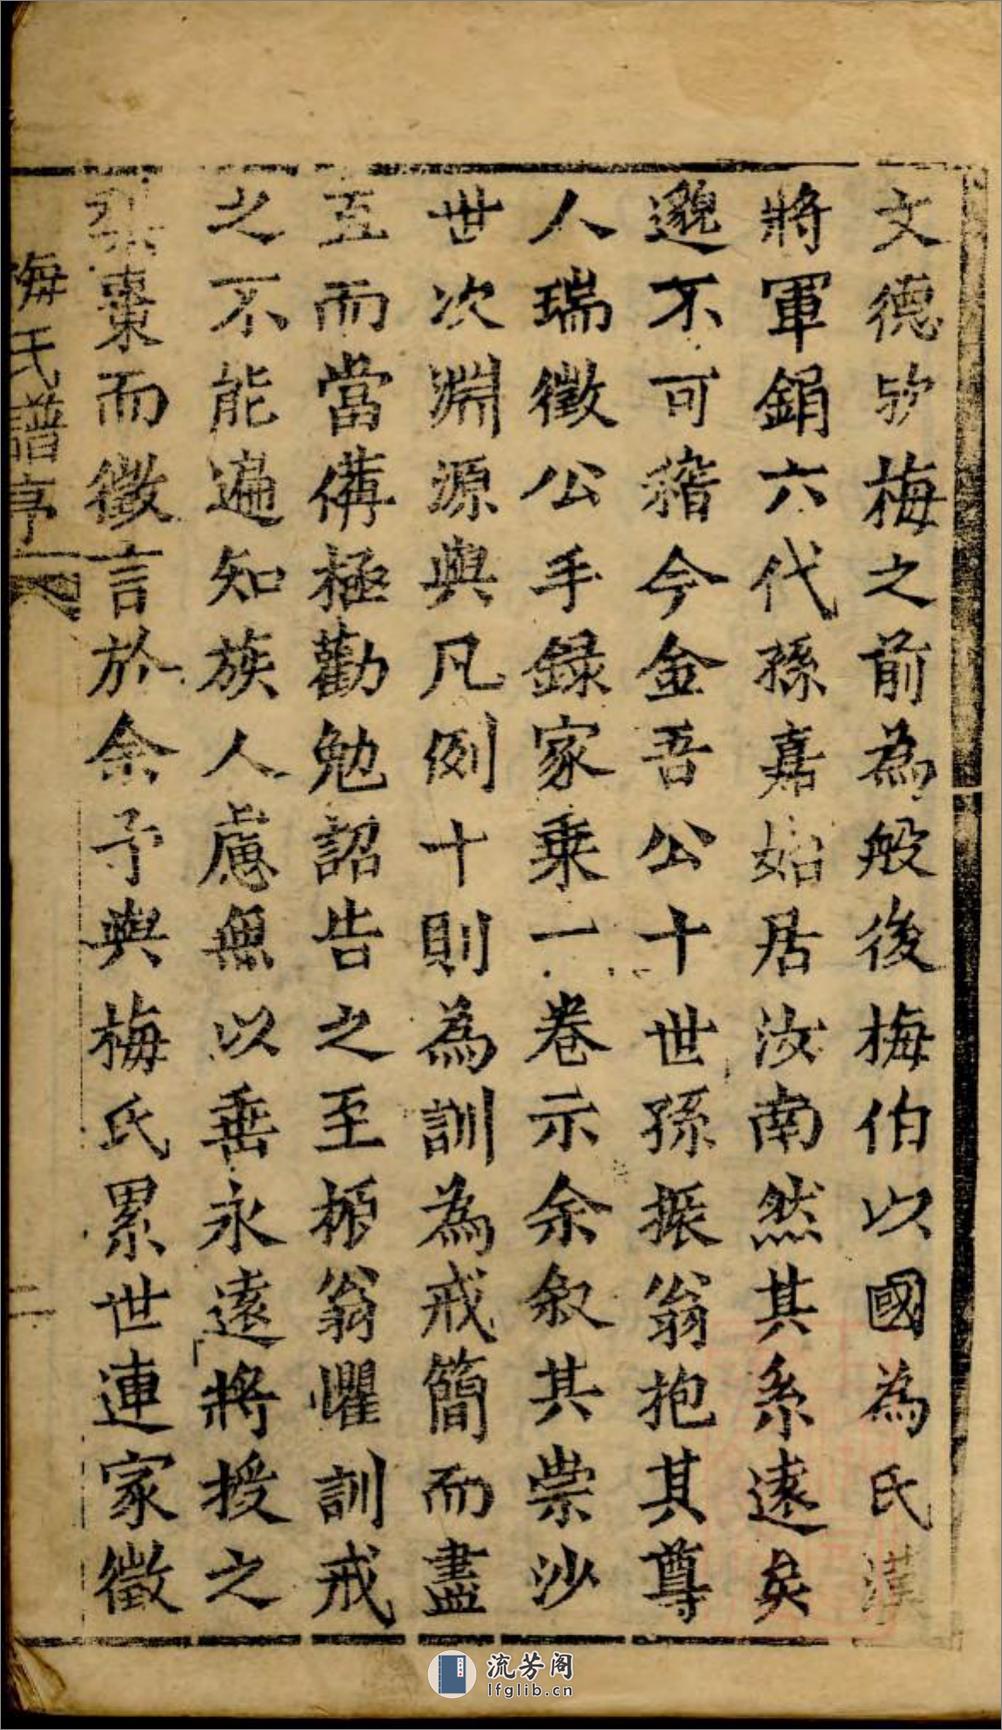 文德歟梅之前為般後梅伯以國為氏漢
將軍鋗六代孫嘉始居汝南然其系遠矣
邈不可稽今金吾公十世孫振翁抱其尊
人瑞徵公手録家乗一卷示余叙其崇沙
世次淵源與凡例十則為訓為戒簡而盡
至而當備極勸勉詔告之至振翁懼訓戒
之不能遍知族人慮無以垂永遠將授之
梨棗而徵言於余予與梅氏累世連家徵
梅氏譜序
二
流芳阁
lfglib.cn